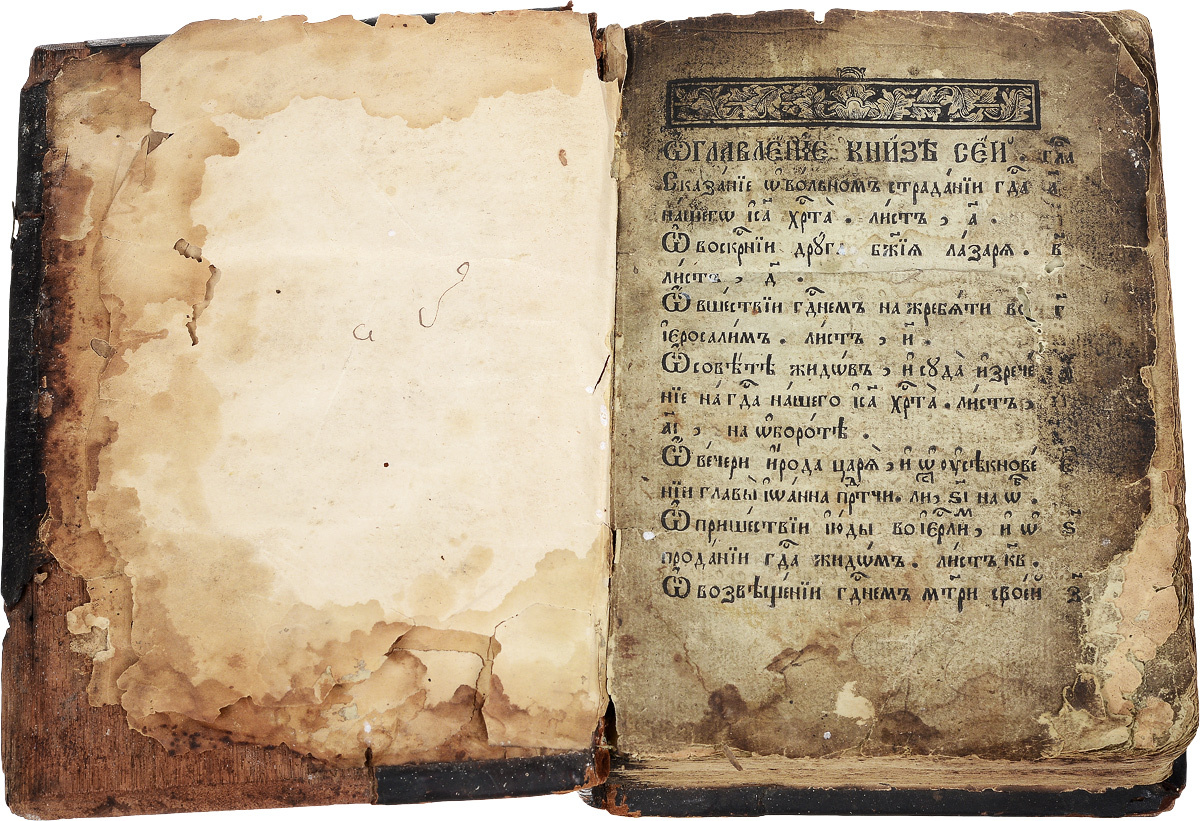 а
Ѡ҆главле́нїе кни́зѣ се́й . гла
Сказа́нїе ѡ҆ во́льномъ страда́нїи гдⷭ҇а а҃
на́шегѡ і҆с҃а хрⷭ҇та̀ . ли́стъ , а҃ .
Ѡ҆ воскрⷭ҇нїи дрꙋ́га бж҃їѧ ла́зарѧ . в҃
ли́стъ , д҃ .
Ѡ҆ вше́ствїи гдⷭ҇немъ на жребѧ́ти во г҃
і҆еросали́мъ . ли́стъ , и҃ .
Ѡ҆ совѣ́тѣ жидѡ́въ , и҆ сꙋда̀ и҆зрече́
нїе на гдⷭ҇а на́шего і҆с҃а хрⷭ҇та̀ . ли́стъ ,
а҃і , на ѡ҆боро́тѣ .
Ѡ҆ ве́чери и҆́рода царѧ̀ , и҆ ѡ҆ оу҆сѣкнове́
нїи главы̀ і҆ѡа́нна прⷣтчи . ли , ѕ҃і на ѡ҆б .
Ѡ҆ прише́ствїи і҆ю́ды во і҆ерⷭ҇ли́мъ , и҆ ѡ҆ ѕ҃
прода́нїи гдⷭ҇а жидѡ́мъ . ли́стъ к҃в .
Ѡ҆ возвѣще́нїи гдⷭ҇немъ мт҃ри свое́й з҃